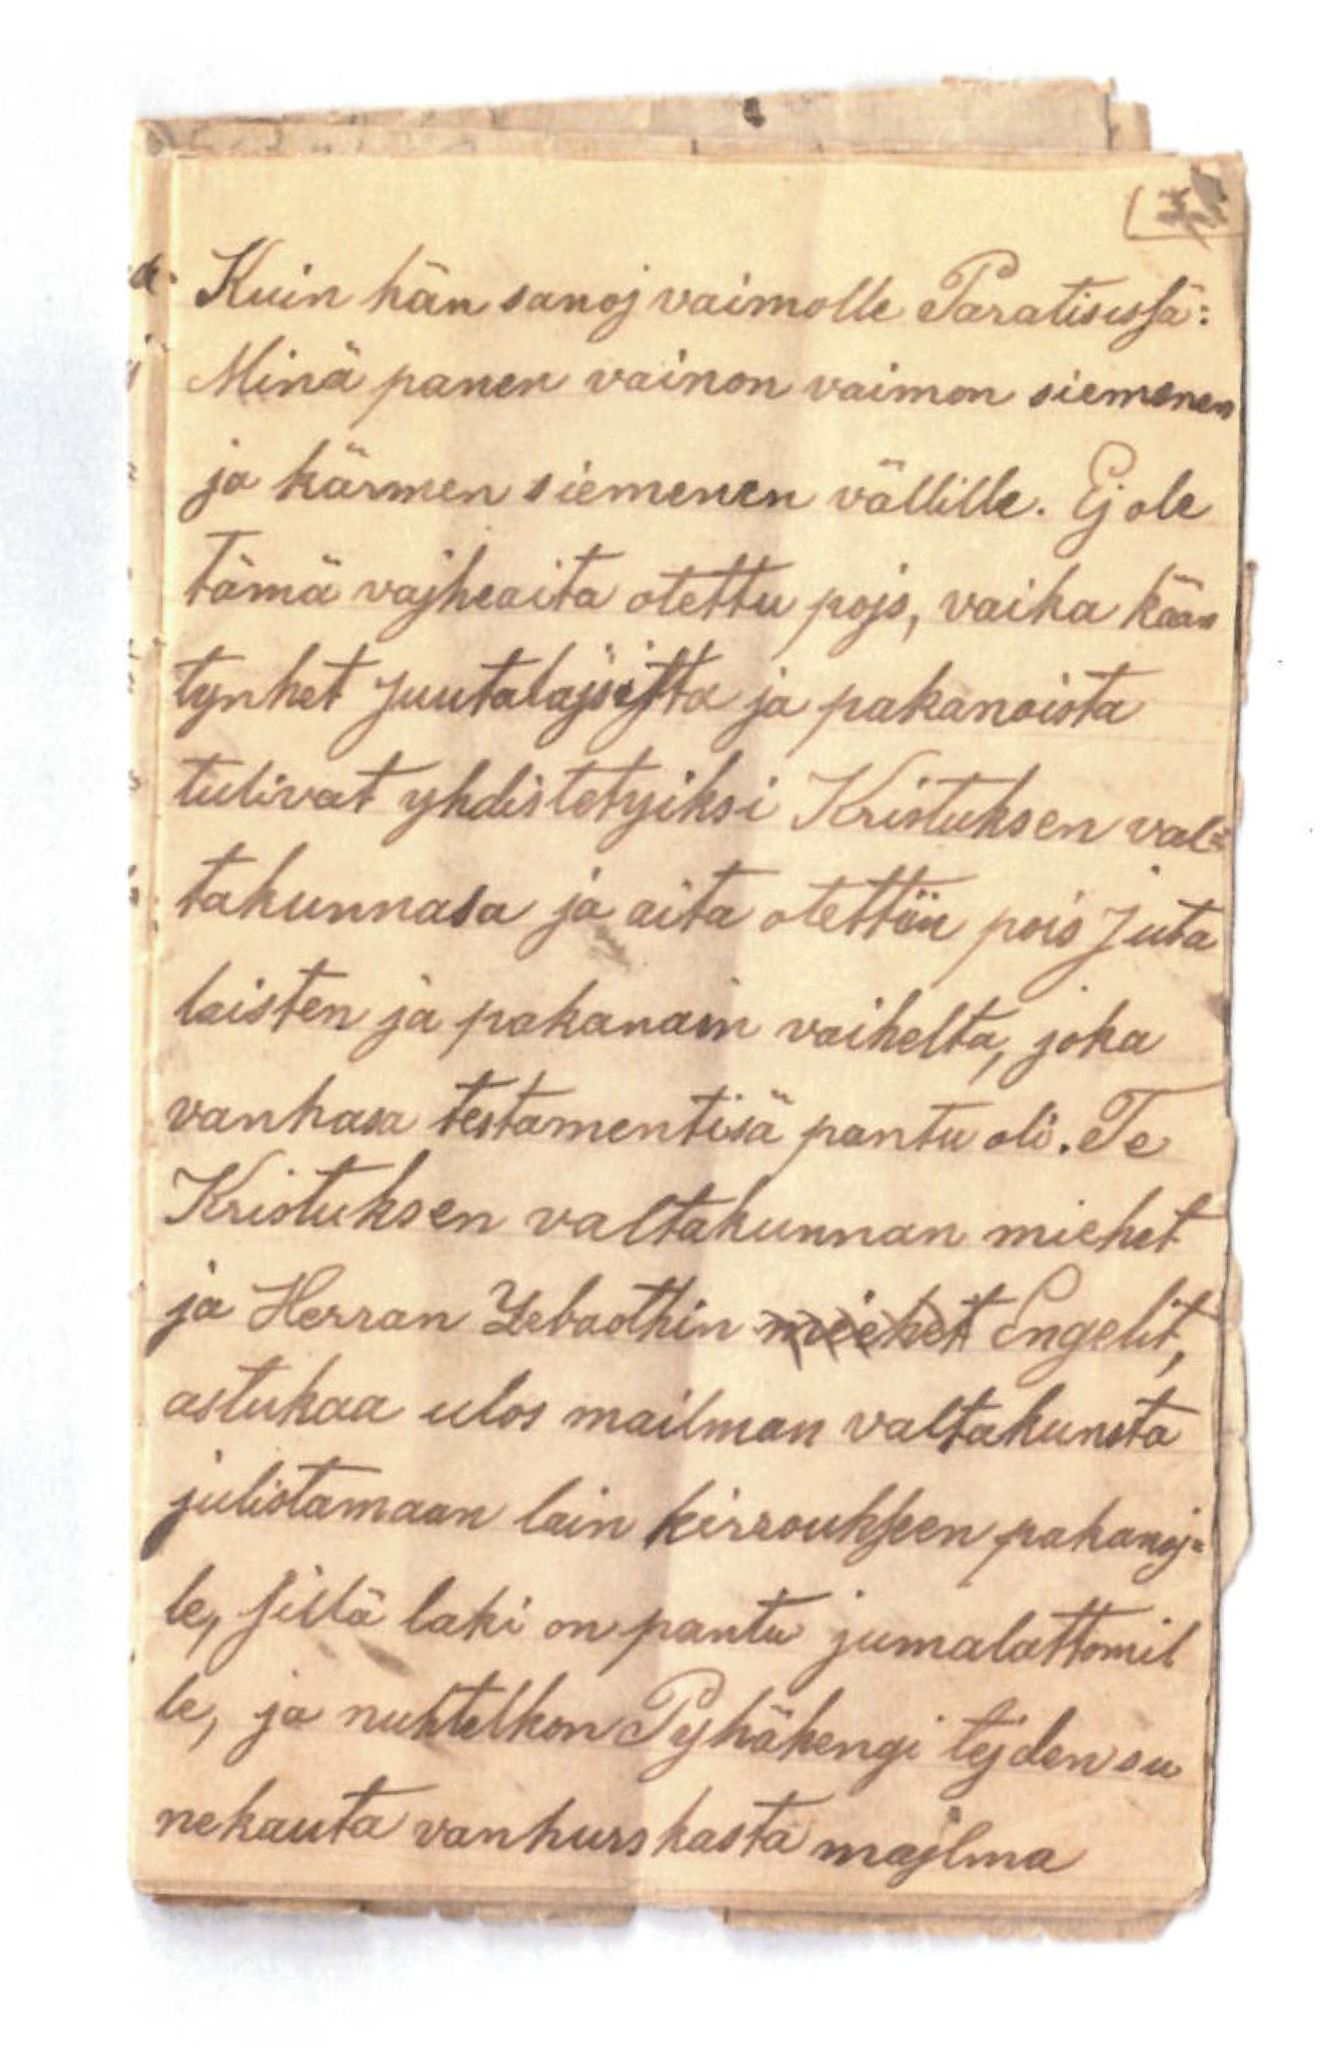 3
Kuin hän sanoj vaimolle Paratisissä:
Minä panen vainon vaimon siemenen
ja kärmen siemenen vällille. Ej ole
tämä vajheaita otettu pojs, vaika kään
tynhet Juutalajsista ja pakanoista
tulivat yhdistetyiksi Kristuksen val=
takunnasa ja aita otettiin pois Juta
laisten ja pakanain vaihelta, joka
vanhasa testamentisä pantu oli. Te
Kristuksen valtakunnan miehet
ja Herran Zebaothin miehet Engelit,
astukaa ulos mailman valtakunsta
julistamaan lain kirrouksen pakanoj=
le, sillä laki on pantu jumalattomil
le, ja nuhtelkon Pyhähengi tejden su
nekauta vanhurskasta majlma